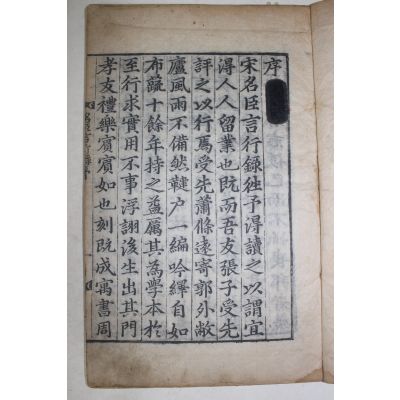 序
宋名臣言行錄徃予得讀之以謂宜
得人人留業也既而吾友張子受先
評之以行焉受先蕭條遠寄郭外敝
廬風雨不備然鍵户一編吟繹自如
布蔬十餘年持之益厲其為學本於
至行求實用不事浮詡後生出其門
孝友禮樂賓賓如也刻既成寓書周